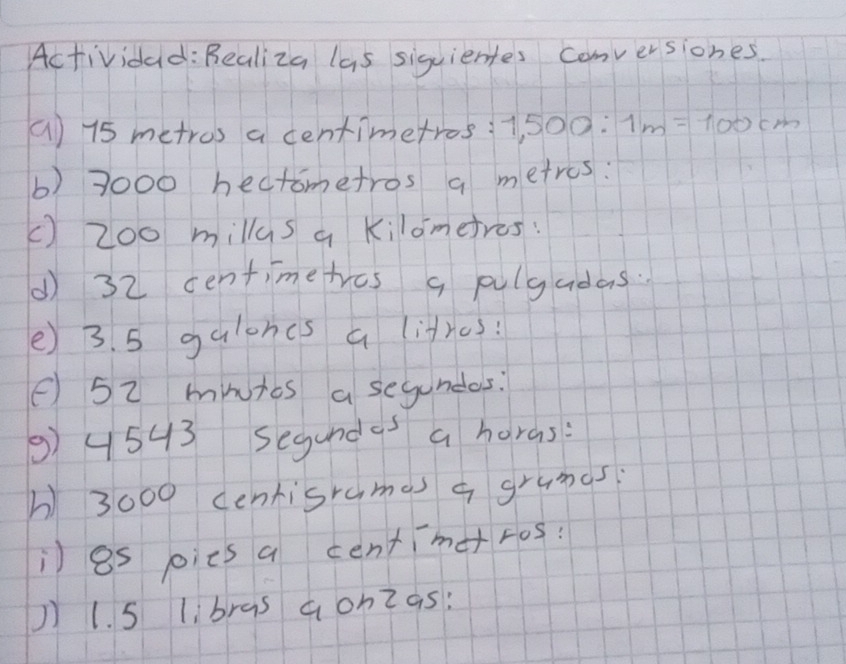 Actividad: Realiza las siguientes conversiones.
a) 15 metros a centímetros: 1,500: 1m = 100cm
b) 7000 hectómetros a metros:
c) 200 millas a Kilómetros:
d) 32 centímetros a pulgadas:
e) 3.5 galones a litros:
f) 52 minutos a segundos:
g) 4543 segundos a horas:
h) 3000 centigramos a gramos:
i) 85 pies a centímetros:
j) 1.5 libras a onzas: